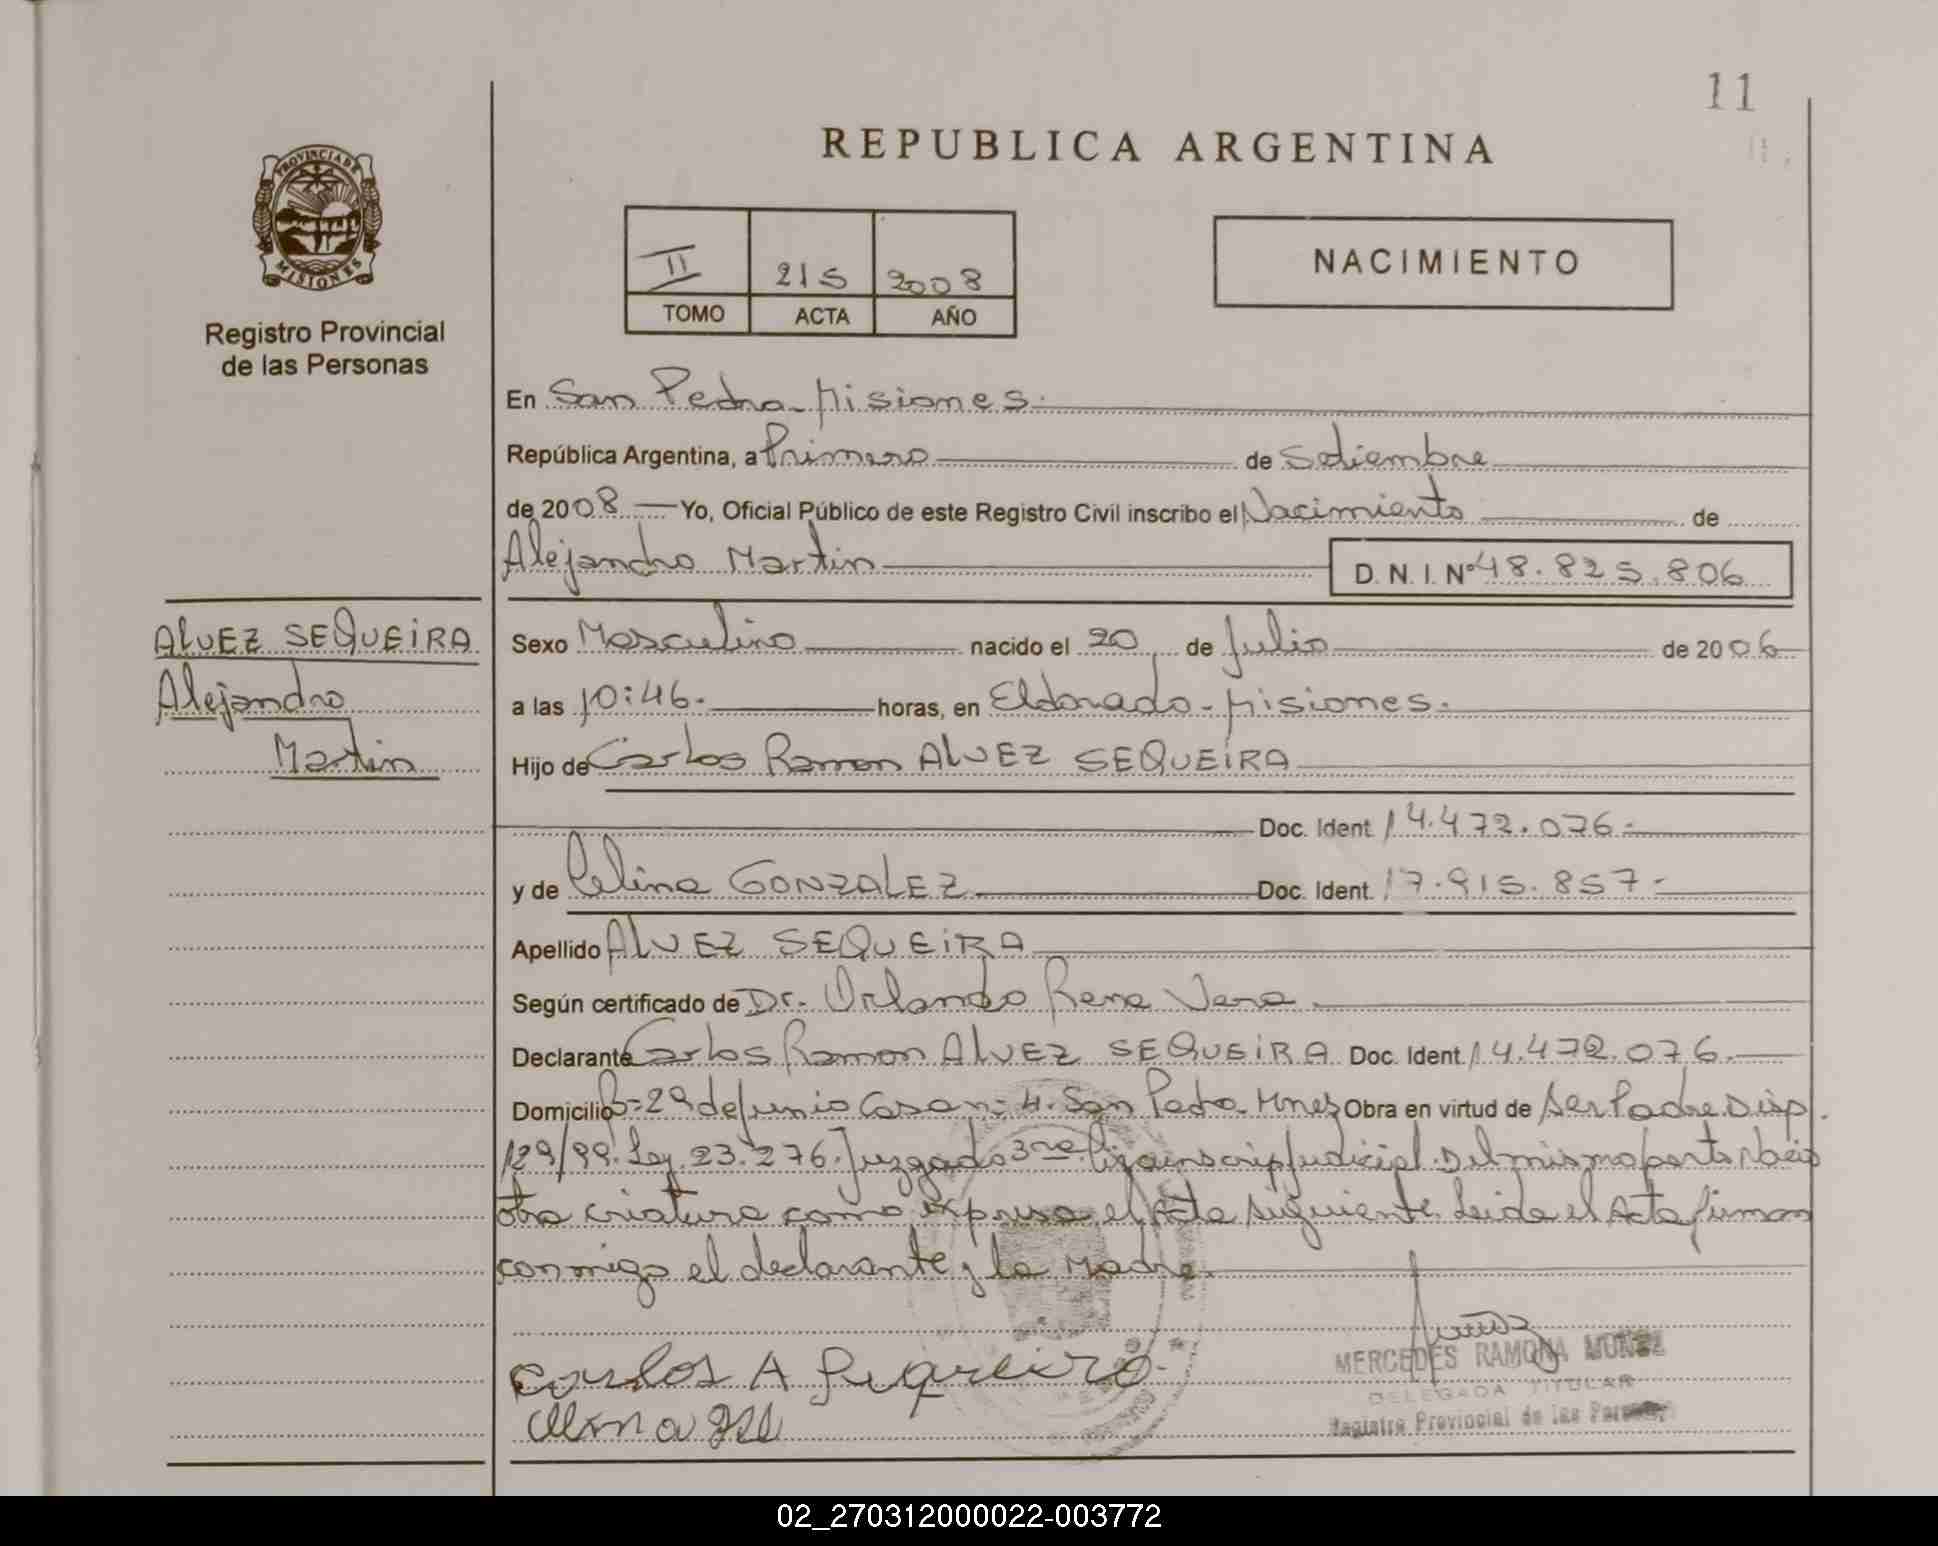 11
REPUBLICA ARGENTINA
PROVINCIA DE
MISIONES
Registro Provincial
de las Personas
II 215 2008
TOMO ACTA AÑO
NACIMIENTO
En San Pedro - Misiones.
República Argentina, a Primero de Setiembre
de 2008 Yo, Oficial Público de este Registro Civil inscribo el Nacimiento de
Alejandro Martin D. N. I. Nº 48.825.806
ALVEZ SEQUEIRA
Alejandro
Martin
Sexo Masculino nacido el 20 de Julio de 2006
a las 10:46. horas, en Eldorado - Misiones.
Hijo de Carlos Ramon ALVEZ SEQUEIRA
Doc. Ident. 14.472.076.
y de Celina GONZALEZ Doc. Ident. 17.915.857.
Apellido ALVEZ SEQUEIRA
Según certificado de Dr. Orlando Rene Vera
Declarante Carlos Ramon ALVEZ SEQUEIRA Doc. Ident. 14.472.076.
Domicilio B= 29 de junio Casa n= 4. San Pedro Mnes Obra en virtud de ser Padre. Disp.
129/99. Ley. 23.276. Juzgado 3ra. judicial. Del mismo parto Nacio
otra criatura como expresa el Acta siguiente. Leida el Acta firman
conmigo el declarante y la Madre.
Carlos A Sequeira
MERCEDES RAMONA MUÑEZ
DELEGADA TITULAR
Registro Provincial de las Personas
02_270312000022-003772